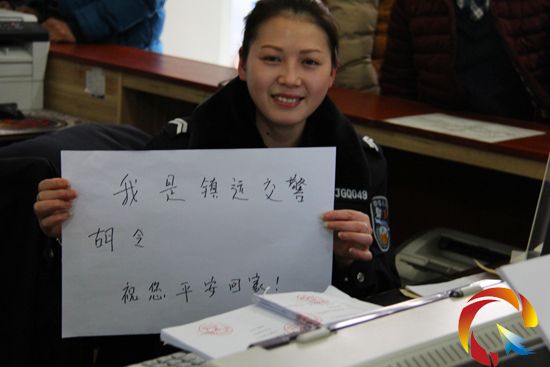 我是镇远交警
胡念
祝您平安回家!
JG0049